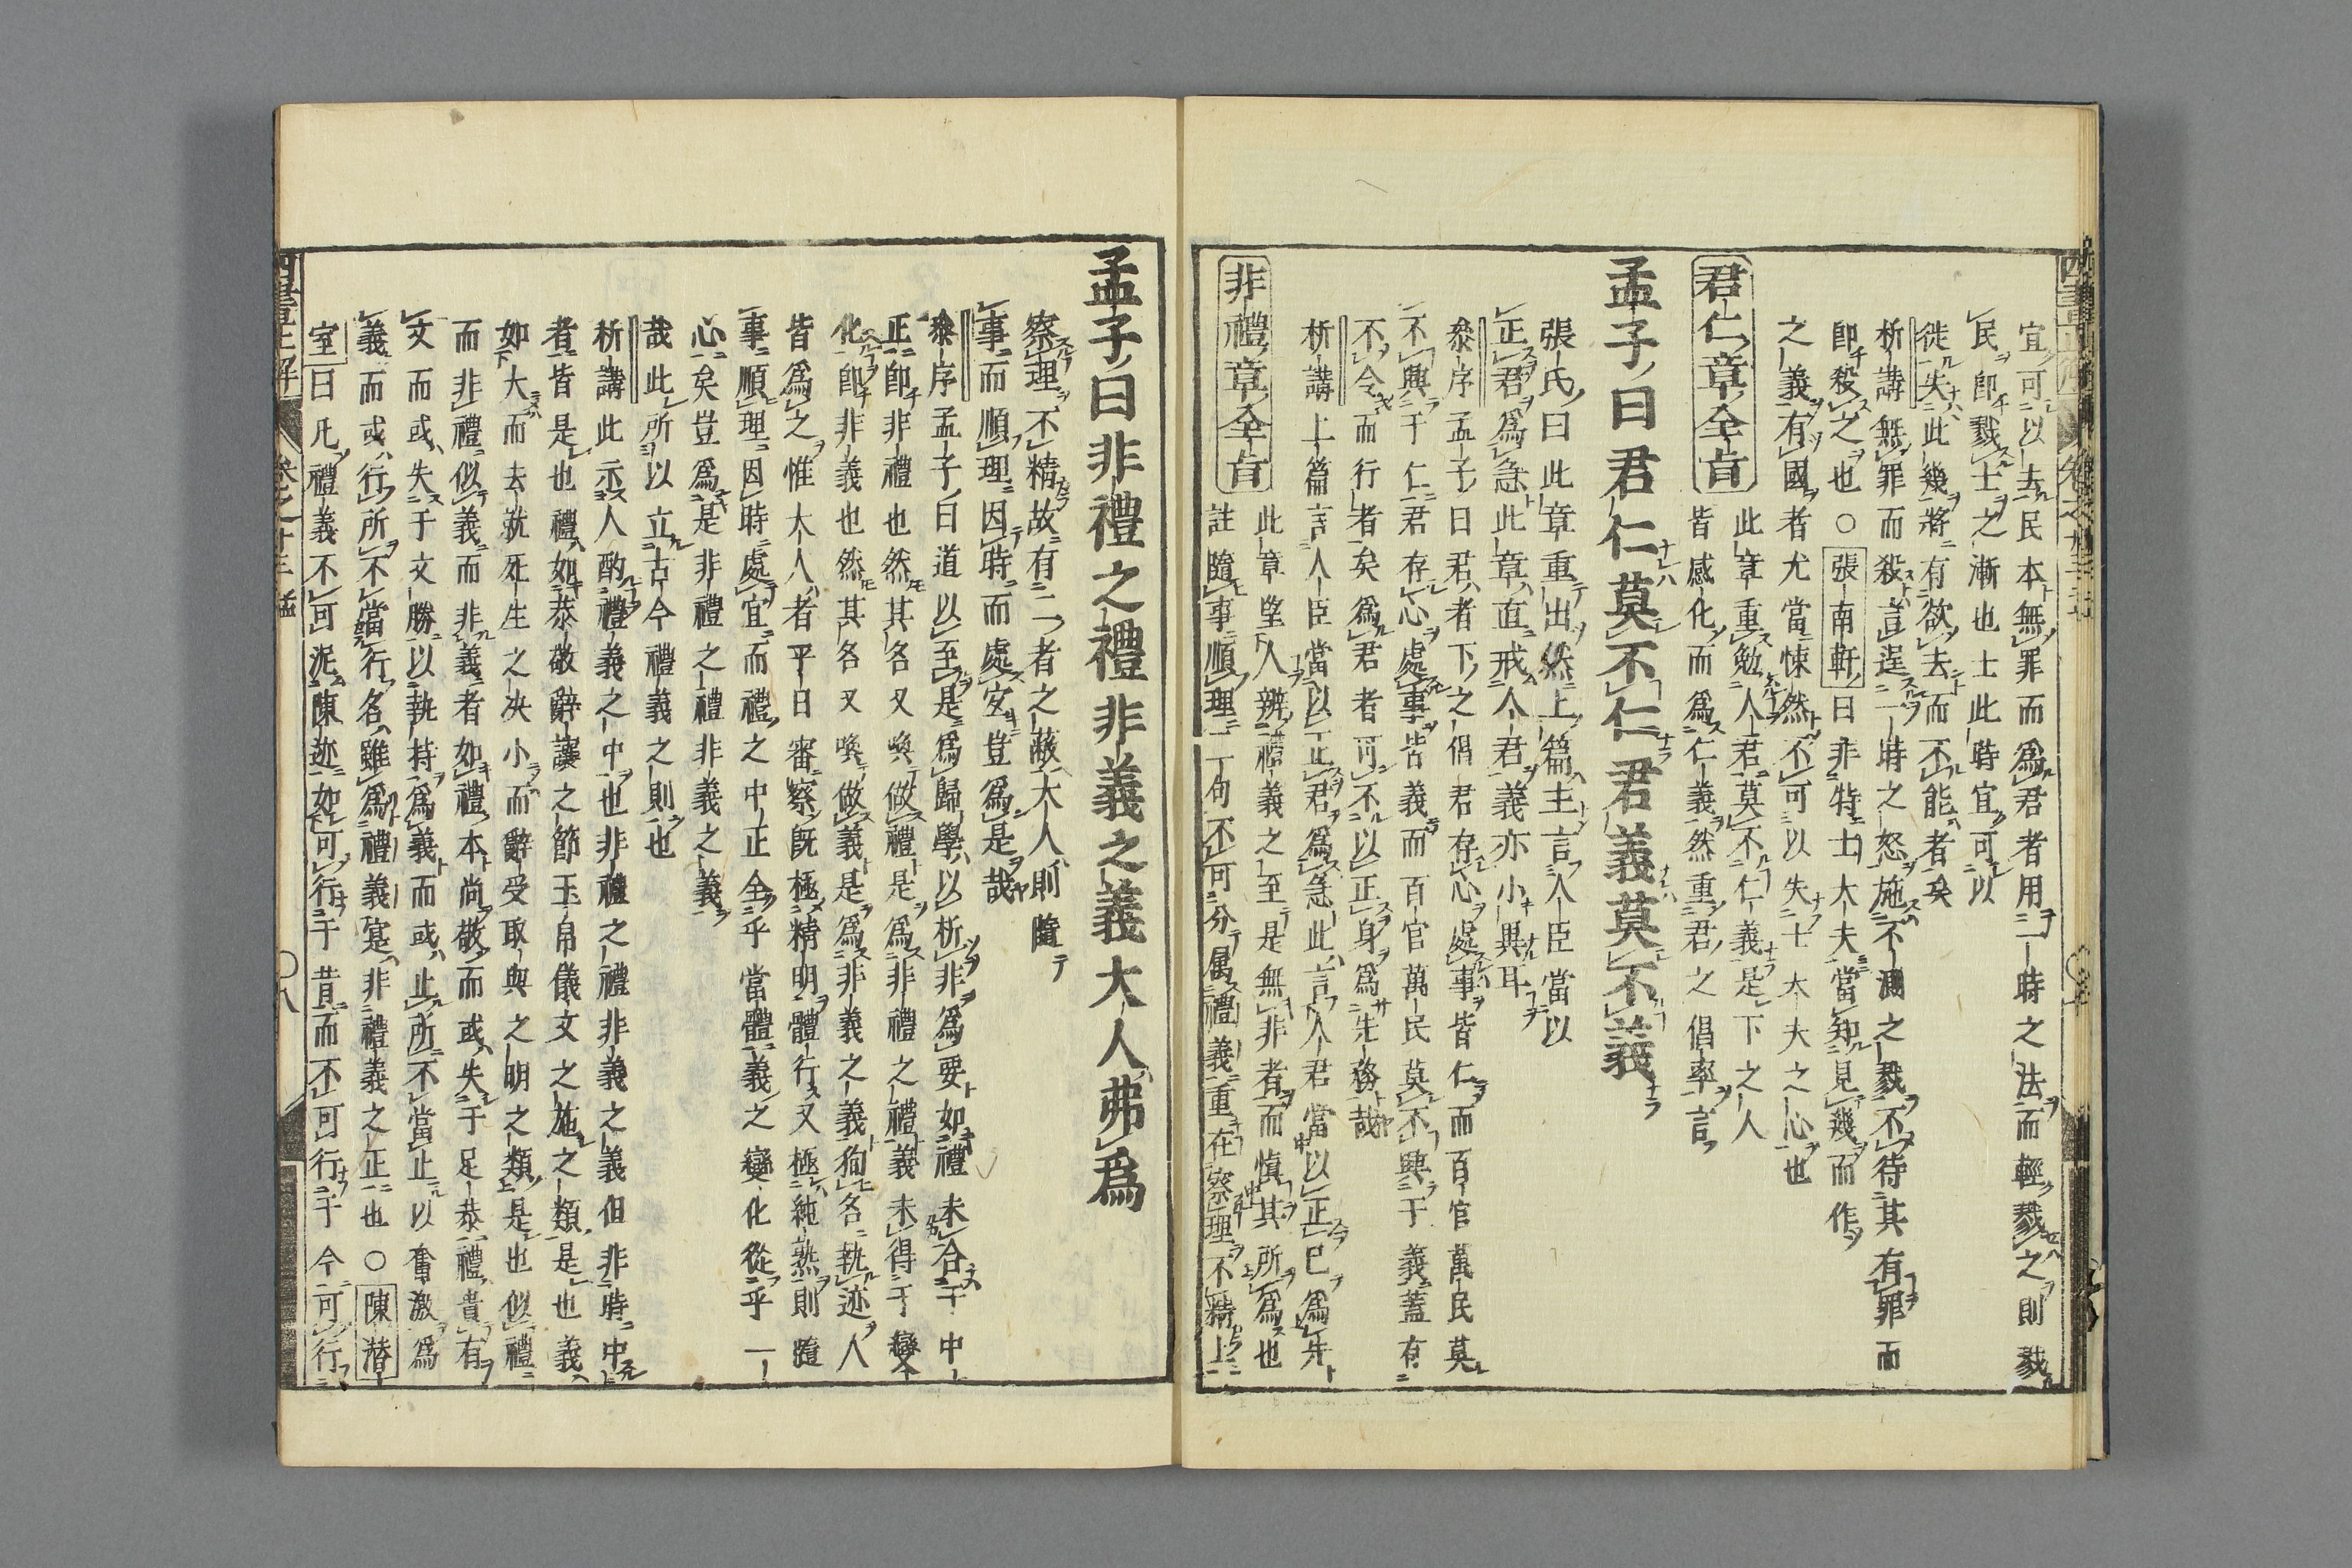 宜可以去民本無罪而爲君者用一時之法而輕戮之則戮
民卽戮士之漸也士此時宜可以
徙失此幾將有欲去而不能者矣
析講無罪而殺言逞一時之怒施不測之戮不待其有罪而
卽殺之也○張南軒曰非特士大夫當知見幾而作
之義有國者尤當悚然不可以失士大夫之心也
君仁章全旨
此章重勉人君莫不仁義是下之人
皆感化而爲仁義然重君之倡率言
孟子曰君仁莫不仁君義莫不義
張氏曰此章重出然上篇主言人臣當以
正君爲急此章直戒人君義亦小異耳
叅序孟子曰君者下之倡君存心處事皆仁而百官萬民莫
不興于仁君存心處事皆義而百官萬民莫不興于義蓋有
不令而行者矣爲君者可不以正身爲先務哉
析講上篇言人臣當以正君爲急此言人君當以正己爲先
非禮章全旨
此章望人辨禮義之至是無非者而愼其所爲也
註隨事順理二句不可分属禮義重在察理不精上
孟子曰非禮之禮非義之義大人弗爲
察理不精故有二者之蔽大人則隨
事而順理因時而處宜豈爲是哉
叅序孟子曰道以至是爲歸學以析非爲要如禮未合于中
正卽非禮也然其名又喚做禮是爲非禮之禮義未得于變
化卽非義也然其名又喚做義是爲非義之義狥名執迹人
皆爲之惟大人者平日審察旣極精明體行又極純熟則隨
事順理因時處宜而禮之中正全乎當體義之變化從乎一
心矣豈爲是非禮之禮非義之義
哉此所以立古今禮義之則也
析講此示人酌禮義之中也非禮之禮非義之義但非時中
者皆是也禮如恭敬辭讓之節玉帛儀文之施之類是也義
如大而去就死生之决小而辭受取與之明之類是也似禮
而非禮似義而非義者如禮本尚敬而或失于足恭禮貴有
文而或失于文勝以執持爲義而或止所不當止以奮激爲
義而或行所不當行名雖爲禮義寔非禮義之正也○陳潜
室曰凡禮義不可泥陳迹如可行于昔而不可行于今可行